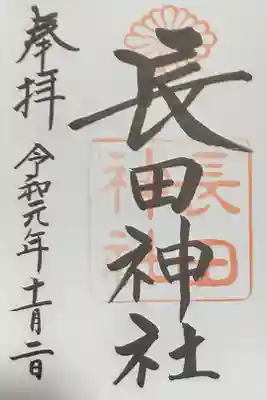 長田神社
奉拝
令和元年十一月二日
長田
神社